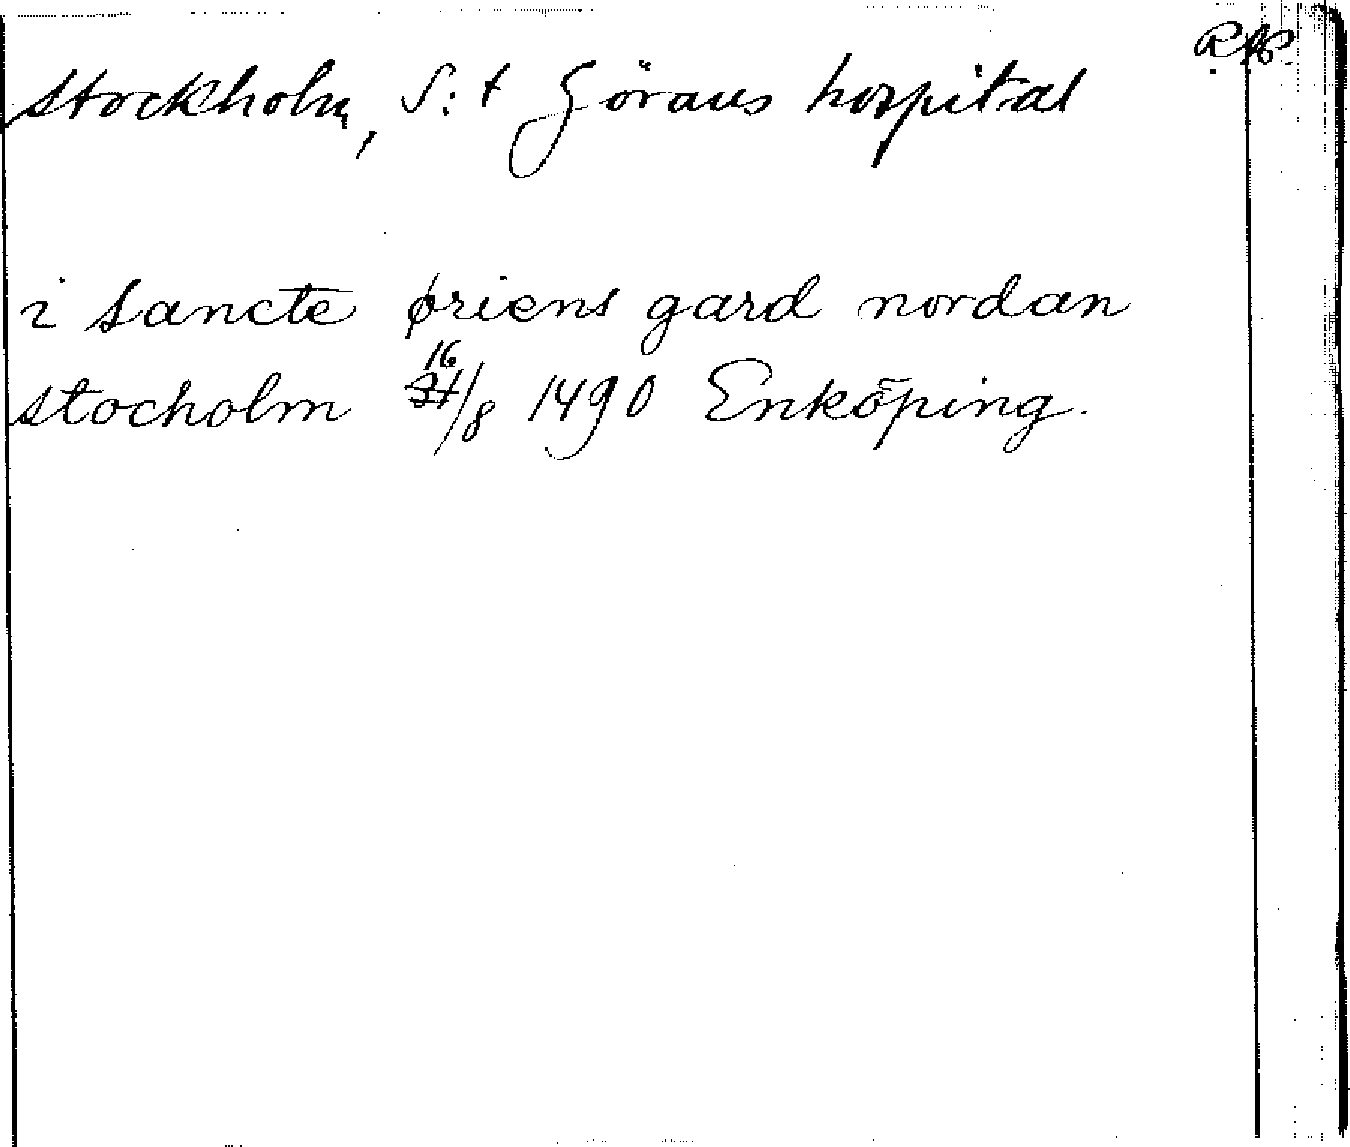 R.A.P.
Stockholm, S:t Görans hospital
i sancte øriens gard nordan
16
stocholm 21/8 1490 Enköping.